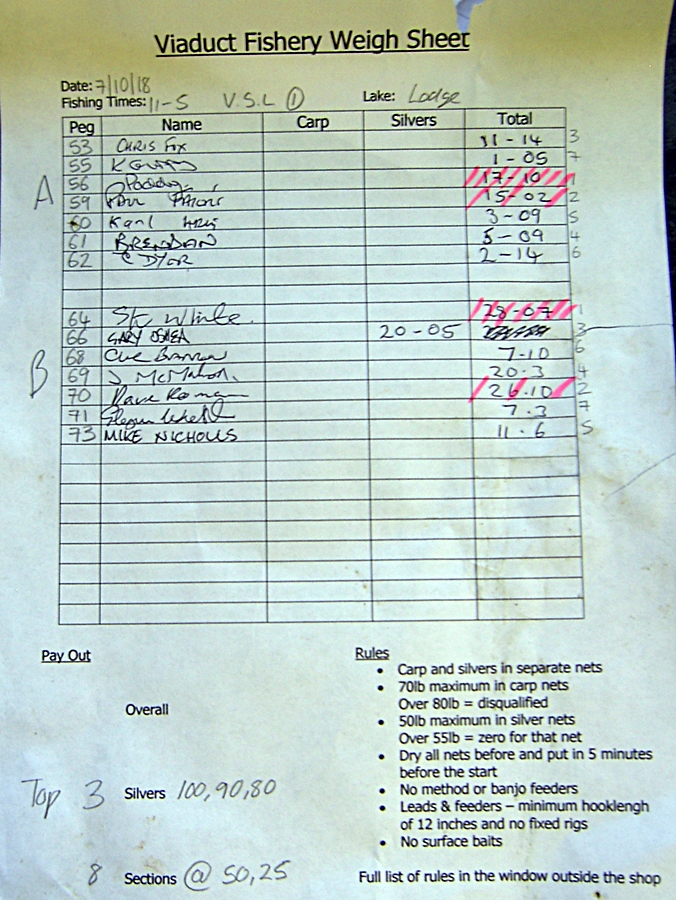 Viaduct Fishery Weigh Sheet
Date: 7/10/18
Fishing Times: 11-5 V.S.L ① Lake: Lodge
Peg Name Carp Silvers Total
53 CHRIS FOX 11-14 3
55 1-05 7
A 56 17-10 1
59 15-02 2
60 Karl 3-09 5
61 BRENDAN 5-09 4
62 C DYER 2-14 6
64 28-07 1
66 GARY OSHEA 20-05 3
B 68 7-10 6
69 J McMahon. 20.3 4
70 Dave Roman 26.10 2
71 7.3 7
73 MIKE NICHOLLS 11.6 5
Pay Out
Overall
Top 3 Silvers 100,90,80
8 Sections @ 50,25
Rules
• Carp and silvers in separate nets
• 70lb maximum in carp nets
Over 80lb = disqualified
• 50lb maximum in silver nets
Over 55lb = zero for that net
• Dry all nets before and put in 5 minutes
before the start
• No method or banjo feeders
• Leads & feeders – minimum hooklengh
of 12 inches and no fixed rigs
• No surface baits
Full list of rules in the window outside the shop